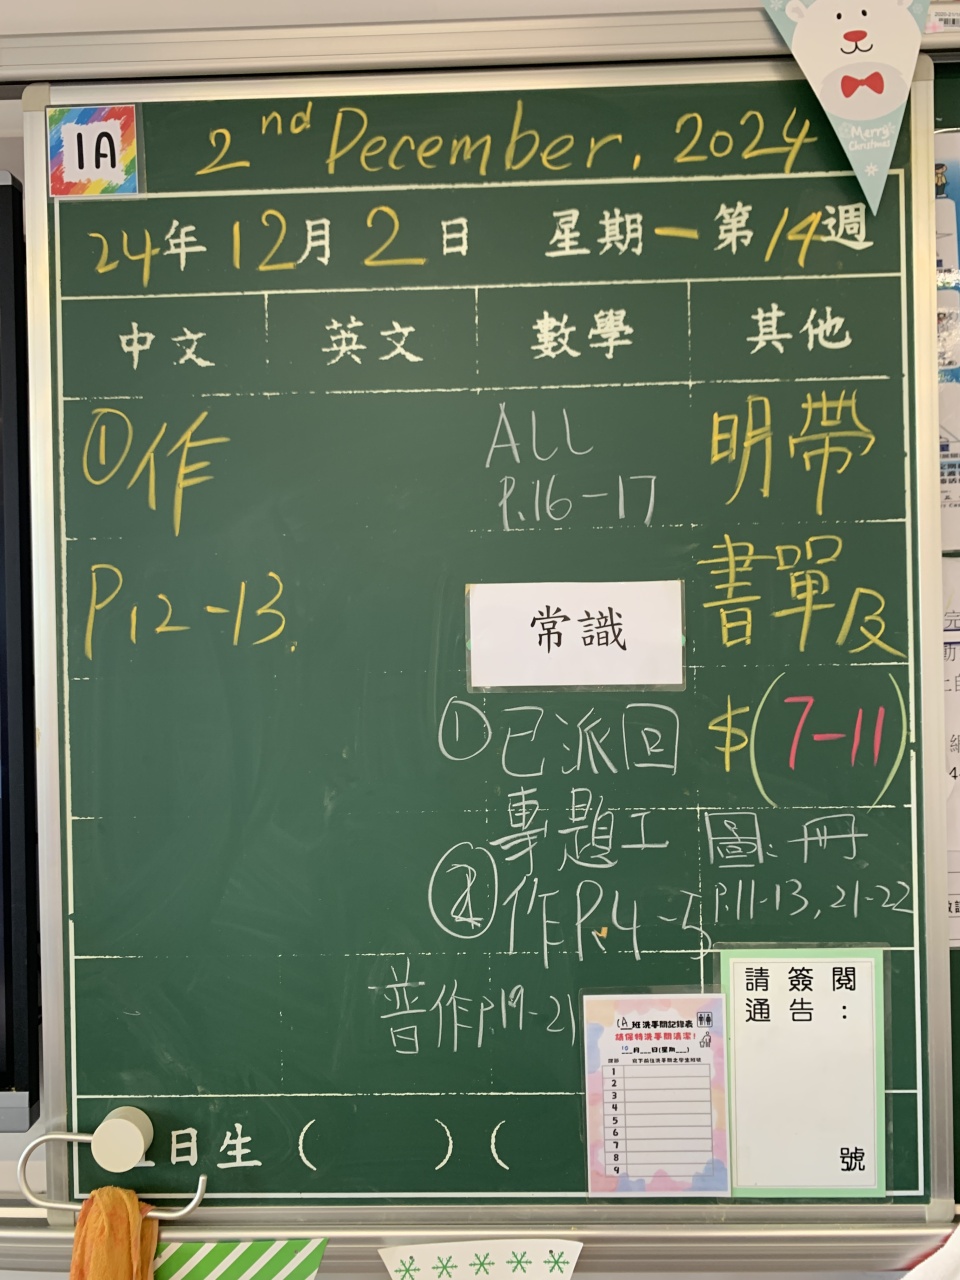 1A
2nd December, 2024
Merry Christmas
24年 12月 2日 星期一 第14週
中文 英文 數學 其他
①作
P.12-13.
ALL
P.16-17
常識
①已派回
專題工
②作P.4-5
普作p.19-21
明帶
書單及
$(7-11)
圖:冊
P.11-13,21-22
1A班洗手間記錄表
請保持洗手間清潔!
月 日(星期 )
1
2
3
4
5
6
7
8
9
請簽閱
通告:
號
日生 ( ) (